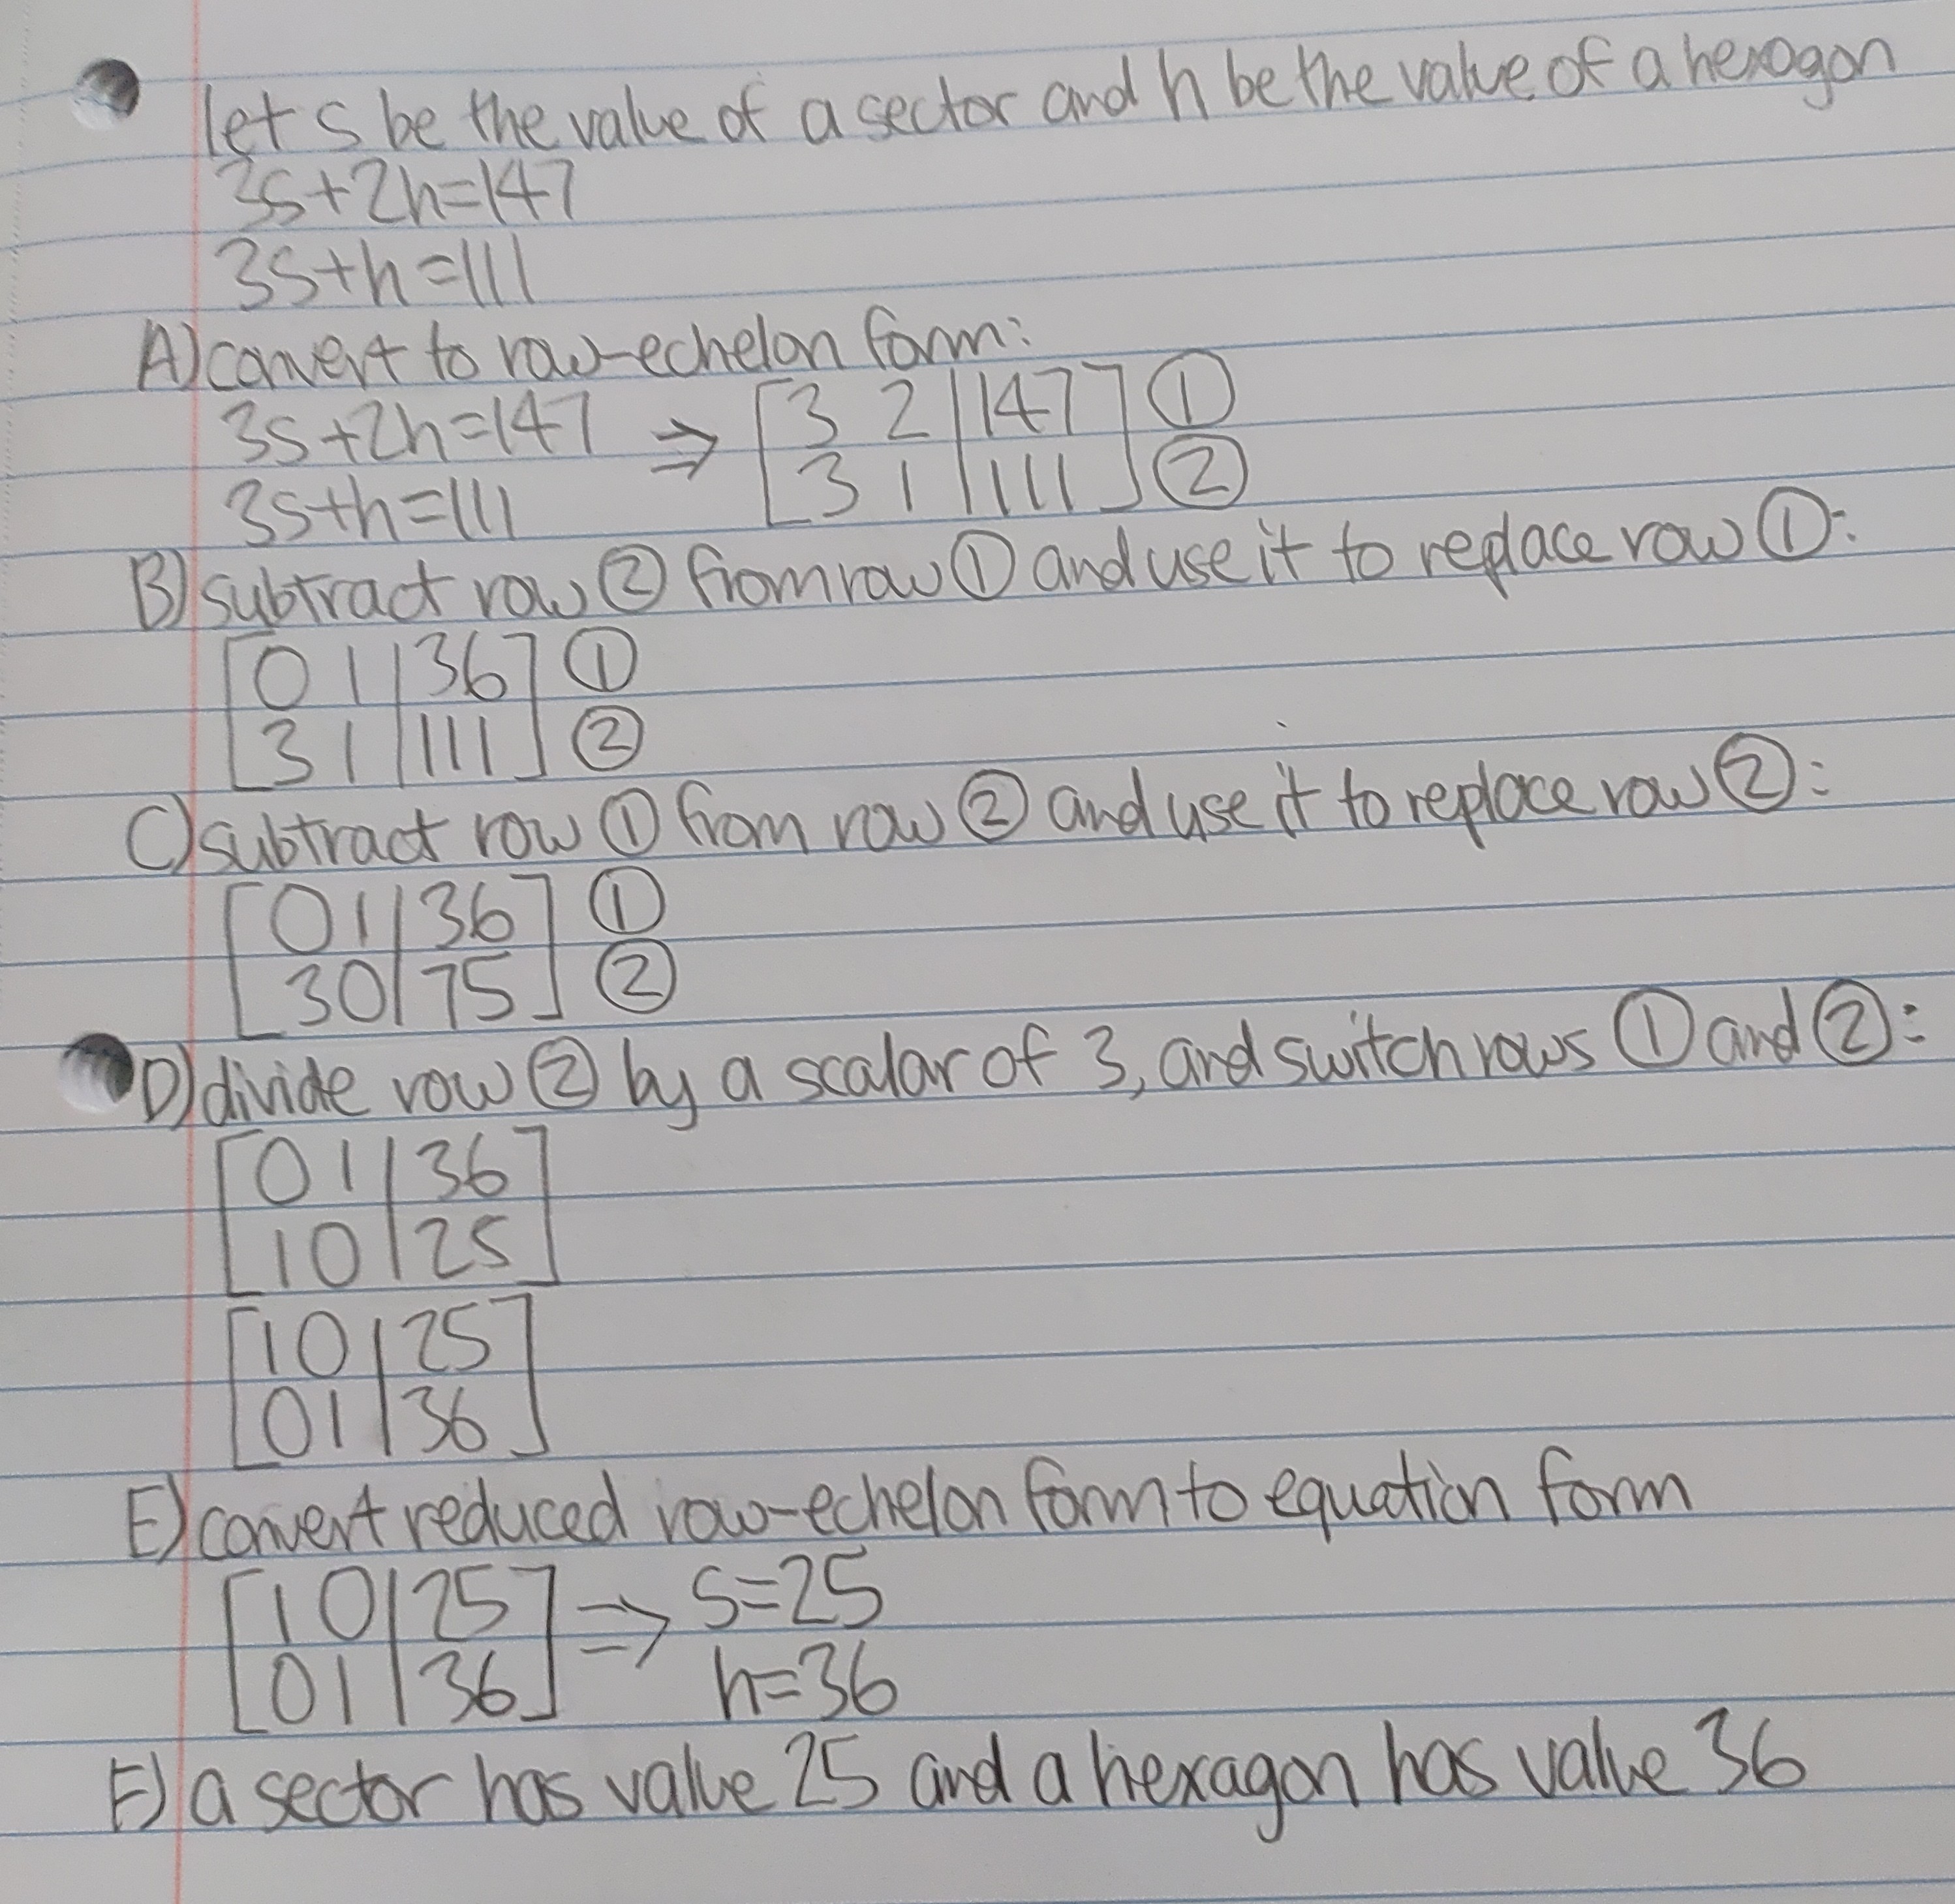 let s be the value of a sector and h be the value of a hexagon
3s+2h=147
3s+h=111
A) convert to row-echelon form:
3s+2h=147 ⇒ [3 2 | 147] ①
3s+h=111 [3 1 | 111] ②
B) subtract row ② from row ① and use it to replace row ①:
[0 1 | 36] ①
[3 1 | 111] ②
C) subtract row ① from row ② and use it to replace row ②:
[0 1 | 36] ①
[3 0 | 75] ②
D) divide row ② by a scalar of 3, and switch rows ① and ②:
[0 1 | 36]
[1 0 | 25]
[1 0 | 25]
[0 1 | 36]
E) convert reduced row-echelon form to equation form
[1 0 | 25] ⇒ s=25
[0 1 | 36] h=36
F) a sector has value 25 and a hexagon has value 36